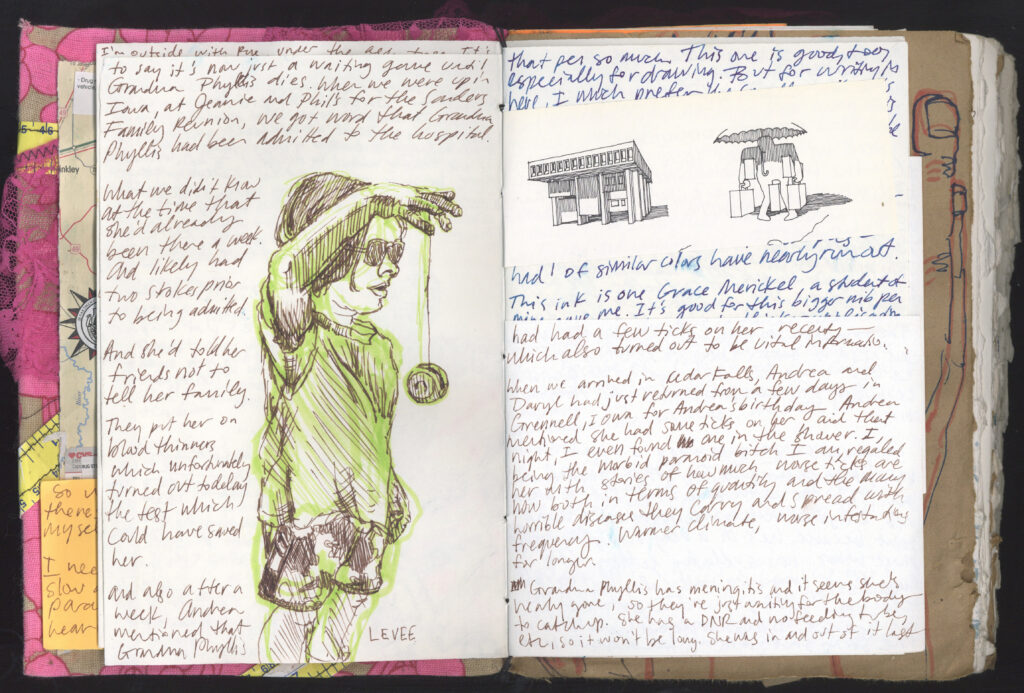 I'm outside with
to say it's now just a waiting game until
Grandma Phyllis dies. When we were up in
Iowa, at Jeanie and Phil's for the Sanders
Family Reunion, we got word that Grandma
Phyllis had been admitted to the hospital.
What we didn't know
at the time that
she'd already
been there a week.
And likely had
two stokes prior
to being admitted.
And she'd told her
friends not to
tell her family.
They put her on
blood thinners
which unfortunately
turned out to delay
the test which
could have saved
her.
and also after a
week, Andrea
mentioned that
Grandma Phyllis
LEVEE
So
there
myse
I nee
slow
para
hear
that pen so much. This one is good too,
especially for drawing. But for writing in
here, I much prefer the
had! of similar colors have nearly run out.
This ink is one Grace Merickel, a student of
mine gave me. It's good for this bigger nib pen
had had a few ticks on her recently —
which also turned out to be vital information.
When we arrived in Cedar Falls, Andrea and
Daryl had just returned from a few days in
Grennell, Iowa for Andrea's birthday. Andrea
mentioned she had some ticks on her and that
night, I even found one in the shower. I,
being the morbid paranoid bitch I am, regaled
her with stories of how much worse ticks are
now both in terms of quantity and the many
horrible diseases they carry and spread with
frequency. Warmer climate, worse infestations
for longer.
Grandma Phyllis has meningitis and it seems she's
nearly gone, so they're just waiting for the body
to catch up. She has a DNR and no feeding tube,
etc, so it won't be long. She was in and out of it last